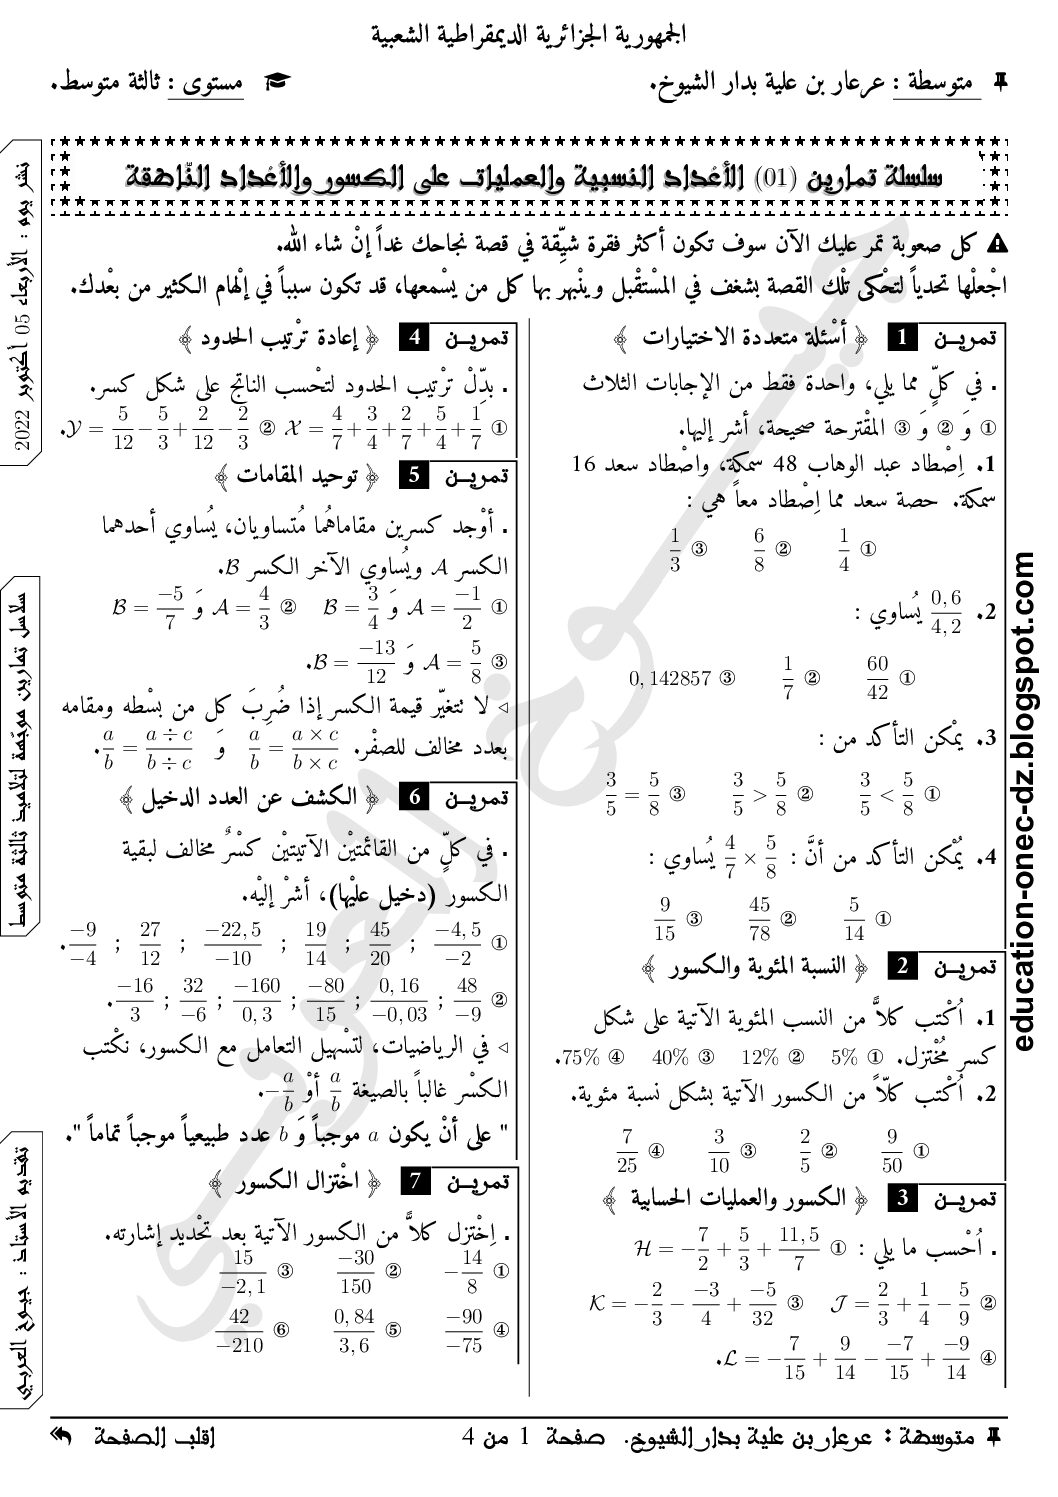 الجمهورية الجزائرية الديمقراطية الشعبية
متوسطة : عرعار بن علية بدار الشيوخ.
مستوى : ثالثة متوسط.
سلسلة تمارين (01) الأعْداد النسبية والعمليات على الكسور والأعْداد النّاطقة
كل صعوبة تمر عليك الآن سوف تكون أكثر فقرة شيِّقة في قصة نجاحك غداً إنْ شاء الله.
اجْعلْها تحدياً لتحْكى تلْك القصة بشغف في المسْتقْبل وينْبهر بها كل من يسْمعها، قد تكون سبباً في إلْهام الكثير من بعْدك.
تمريـن 1 ﴿ أسْئلة متعددة الاختيارات ﴾
. في كلٍّ مما يلي، واحدة فقط من الإجابات الثلاث
① وَ ② وَ ③ المقْترحة صحيحة، أشر إليها.
1. اِصْطاد عبد الوهاب 48 سمكة، واصْطاد سعد 16
سمكة. حصة سعد مما اِصْطاد معاً هي :
① 1/4 ② 6/8 ③ 1/3
2. 0,6/4,2 يُساوي :
① 60/42 ② 1/7 ③ 0,142857
3. يمْكن التأكد من :
① 3/5 < 5/8 ② 3/5 > 5/8 ③ 3/5 = 5/8
4. يُمْكن التأكد من أنَّ : 4/7 × 5/8 يُساوي :
① 5/14 ② 45/78 ③ 9/15
تمريـن 2 ﴿ النسبة المئوية والكسور ﴾
1. اُكْتب كلاًّ من النسب المئوية الآتية على شكل
كسر مُخْتزل. ① 5% ② 12% ③ 40% ④ 75%.
2. اُكْتب كلّاً من الكسور الآتية بشكل نسبة مئوية.
① 9/50 ② 2/5 ③ 3/10 ④ 7/25
تمريـن 3 ﴿ الكسور والعمليات الحسابية ﴾
. اُحْسب ما يلي : ① H = −7/2 + 5/3 + 11,5/7
② J = 2/3 + 1/4 − 5/9 ③ K = −2/3 − −3/4 + −5/32
④ L = −7/15 + 9/14 − −7/15 + −9/14.
تمريـن 4 ﴿ إعادة ترْتيب الحدود ﴾
. بدِّلْ ترْتيب الحدود لتحْسب الناتج على شكل كسر.
① X = 4/7 + 3/4 + 2/7 + 5/4 + 1/7 ② Y = 5/12 − 5/3 + 2/12 − 2/3.
تمريـن 5 ﴿ توحيد المقامات ﴾
. أوْجد كسرين مقاماهُما مُتساويان، يُساوي أحدهما
الكسر A ويُساوي الآخر الكسر B.
① A = −1/2 وَ B = 3/4 ② A = 4/3 وَ B = −5/7
③ A = 5/8 وَ B = −13/12.
◃ لا تتغيّر قيمة الكسر إذا ضُرِبَ كل من بسْطه ومقامه
بعدد مخالف للصفْر. a/b = a × c/b × c وَ a/b = a ÷ c/b ÷ c.
تمريـن 6 ﴿ الكشف عن العدد الدخيل ﴾
. في كلٍّ من القائمتيْن الآتيتيْن كسْرٌ مخالف لبقية
الكسور (دخيل عليْها)، أشرْ إليْه.
① −4,5/−2 ; 45/20 ; 19/14 ; −22,5/−10 ; 27/12 ; −9/−4.
② 48/−9 ; 0,16/−0,03 ; −80/15 ; −160/0,3 ; 32/−6 ; −16/3.
◃ في الرياضيات، لتسْهيل التعامل مع الكسور، نكْتب
الكسْر غالباً بالصيغة a/b أوْ −a/b
" على أنْ يكون a موجباً وَ b عدد طبيعياً موجباً تماماً ".
تمريـن 7 ﴿ اخْتزال الكسور ﴾
. اِخْتزل كلاًّ من الكسور الآتية بعد تحْديد إشارته.
① −14/8 ② −30/150 ③ 15/−2,1
④ −90/−75 ⑤ 0,84/3,6 ⑥ 42/−210
متوسطة : عرعار بن علية بدار الشيوخ. صفحة 1 من 4 اقلب الصفحة
نشر يوم : الأربعاء 05 أكتوبر 2022
سلاسل تمارين موجّهة لتلاميذ ثالثة متوسط
تقديم الأستاذ : جيوخ العربي
education-onec-dz.blogspot.com
جيوخ العربي